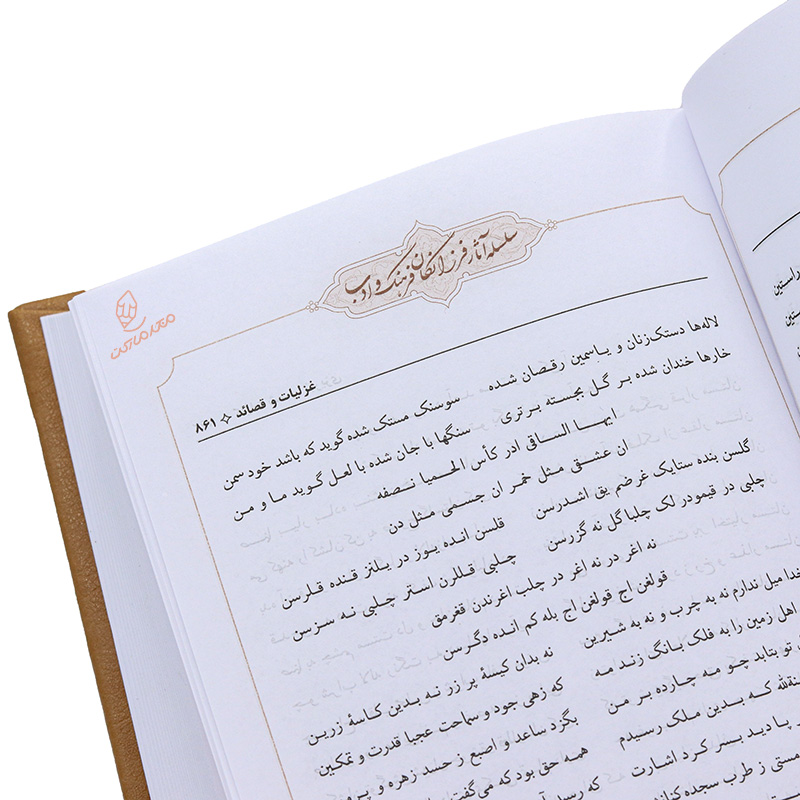 سلسله آثار فرزانگان فرهنگ و ادب
غزلیات و قصائد ✧ ۸۶۱
لاله‌ها دستک‌زنان و یاسمین رقصان شده سوسنک مستک شده گوید که باشد خود سمن
خارها خندان شده بر گل بجسته برتری سنگها با جان شده با لعل گوید ما و من
ایها الساقی ادر کأس الحمیا نصفه
ان عشق مثل خمر ان جسمی مثل دن
گلسن بنده ستایک غرضم یق اشدرسن قلسن انده یوز در یلنز قنده قلرسن
چلبی در قیمودر لک چلبا گل نه گزرسن چلبی قللرن استر چلبی نه سزسن
نه اغر در نه اغر در چلب اغرندن قغرمق
قولغن اج قولغن اج بله کم انده دگرسن
خدا میل ندارم نه به چرب و نه به شیرین نه بدان کیسهٔ پر زر نه بدین کاسهٔ زرین
اهل زمین را به فلک بانگ زند مه که زهی جود و سماحت عجبا قدرت و تمکین
تو بتابد چو مه چارده بر من بگزد ساعد و اصبع ز حسد زهره و پرو
که بدین ملک رسیدم همه حق بود که می‌گفت
پا دید بسر کرد اشارت که رسید
مستی ز طرب سجده کنان
داستین
ستین